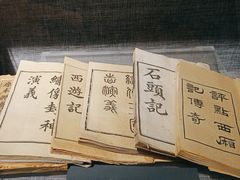 評點西廂
記傳奇
石頭記
志演義
西遊記
繡像封神
演義